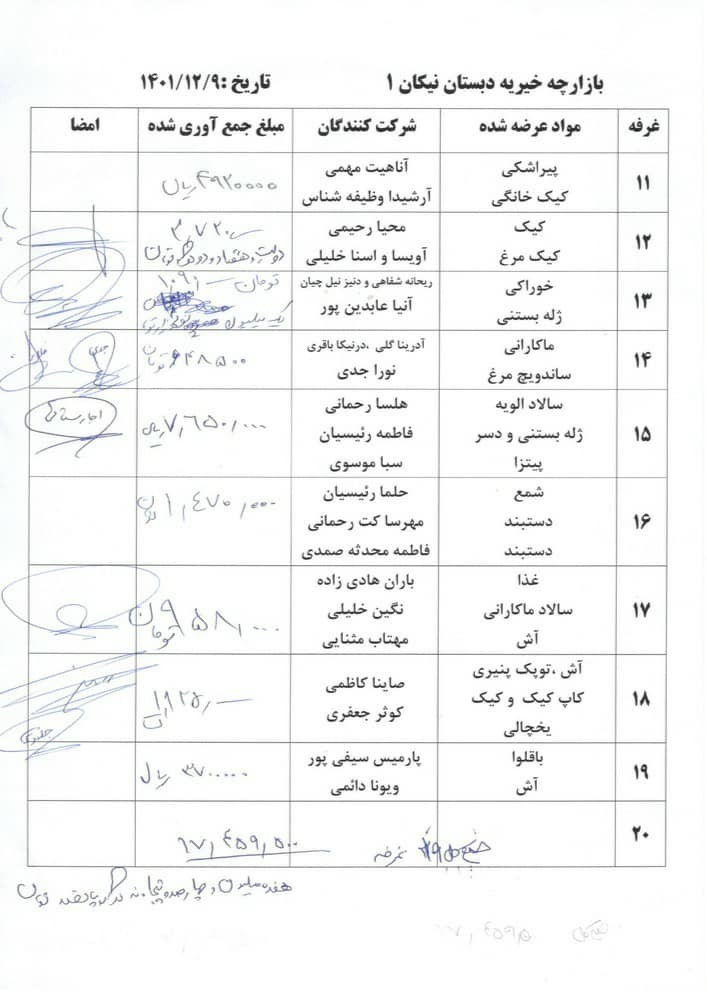 بازارچه خیریه دبستان نیکان ۱ تاریخ :۱۴۰۱/۱۲/۹
غرفه مواد عرضه شده شرکت کنندگان مبلغ جمع آوری شده امضا
۱۱ پیراشکی آناهیت مهمی ۴۹۲۰۰۰۰ ریال
کیک خانگی آرشیدا وظیفه شناس
۱۲ کیک محیا رحیمی
کیک مرغ آویسا و اسنا خلیلی تومان
۱۳ خوراکی ریحانه شفاهی و دنیز نیل چیان تومان
ژله بستنی آنیا عابدین پور یک میلیون
۱۴ ماکارانی آدرینا گلی ،درنیکا باقری ۶۴۸۵۰۰ تومان
ساندویچ مرغ نورا جدی
۱۵ سالاد الویه هلسا رحمانی ۷,۶۵۰,۰۰۰ ریال
ژله بستنی و دسر فاطمه رئیسیان
پیتزا سبا موسوی
۱۶ شمع حلما رئیسیان ۱,۴۷۰,۰۰۰ تومان
دستبند مهرسا کت رحمانی
دستبند فاطمه محدثه صمدی
۱۷ غذا باران هادی زاده ۹۵۸,۰۰۰ تومان
سالاد ماکارانی نگین خلیلی
آش مهتاب مثنایی
۱۸ آش ،توپک پنیری صاینا کاظمی
کاپ کیک و کیک کوثر جعفری
یخچالی
۱۹ باقلوا پارمیس سیفی پور ۳۷۰۰۰۰۰ ریال
آش ویونا دائمی
۲۰ جمع کل ۱۹ غرفه ۱۷,۴۵۹,۵۰۰
هفده میلیون و چهارصد و پنجاه و نه هزار و پانصد تومان